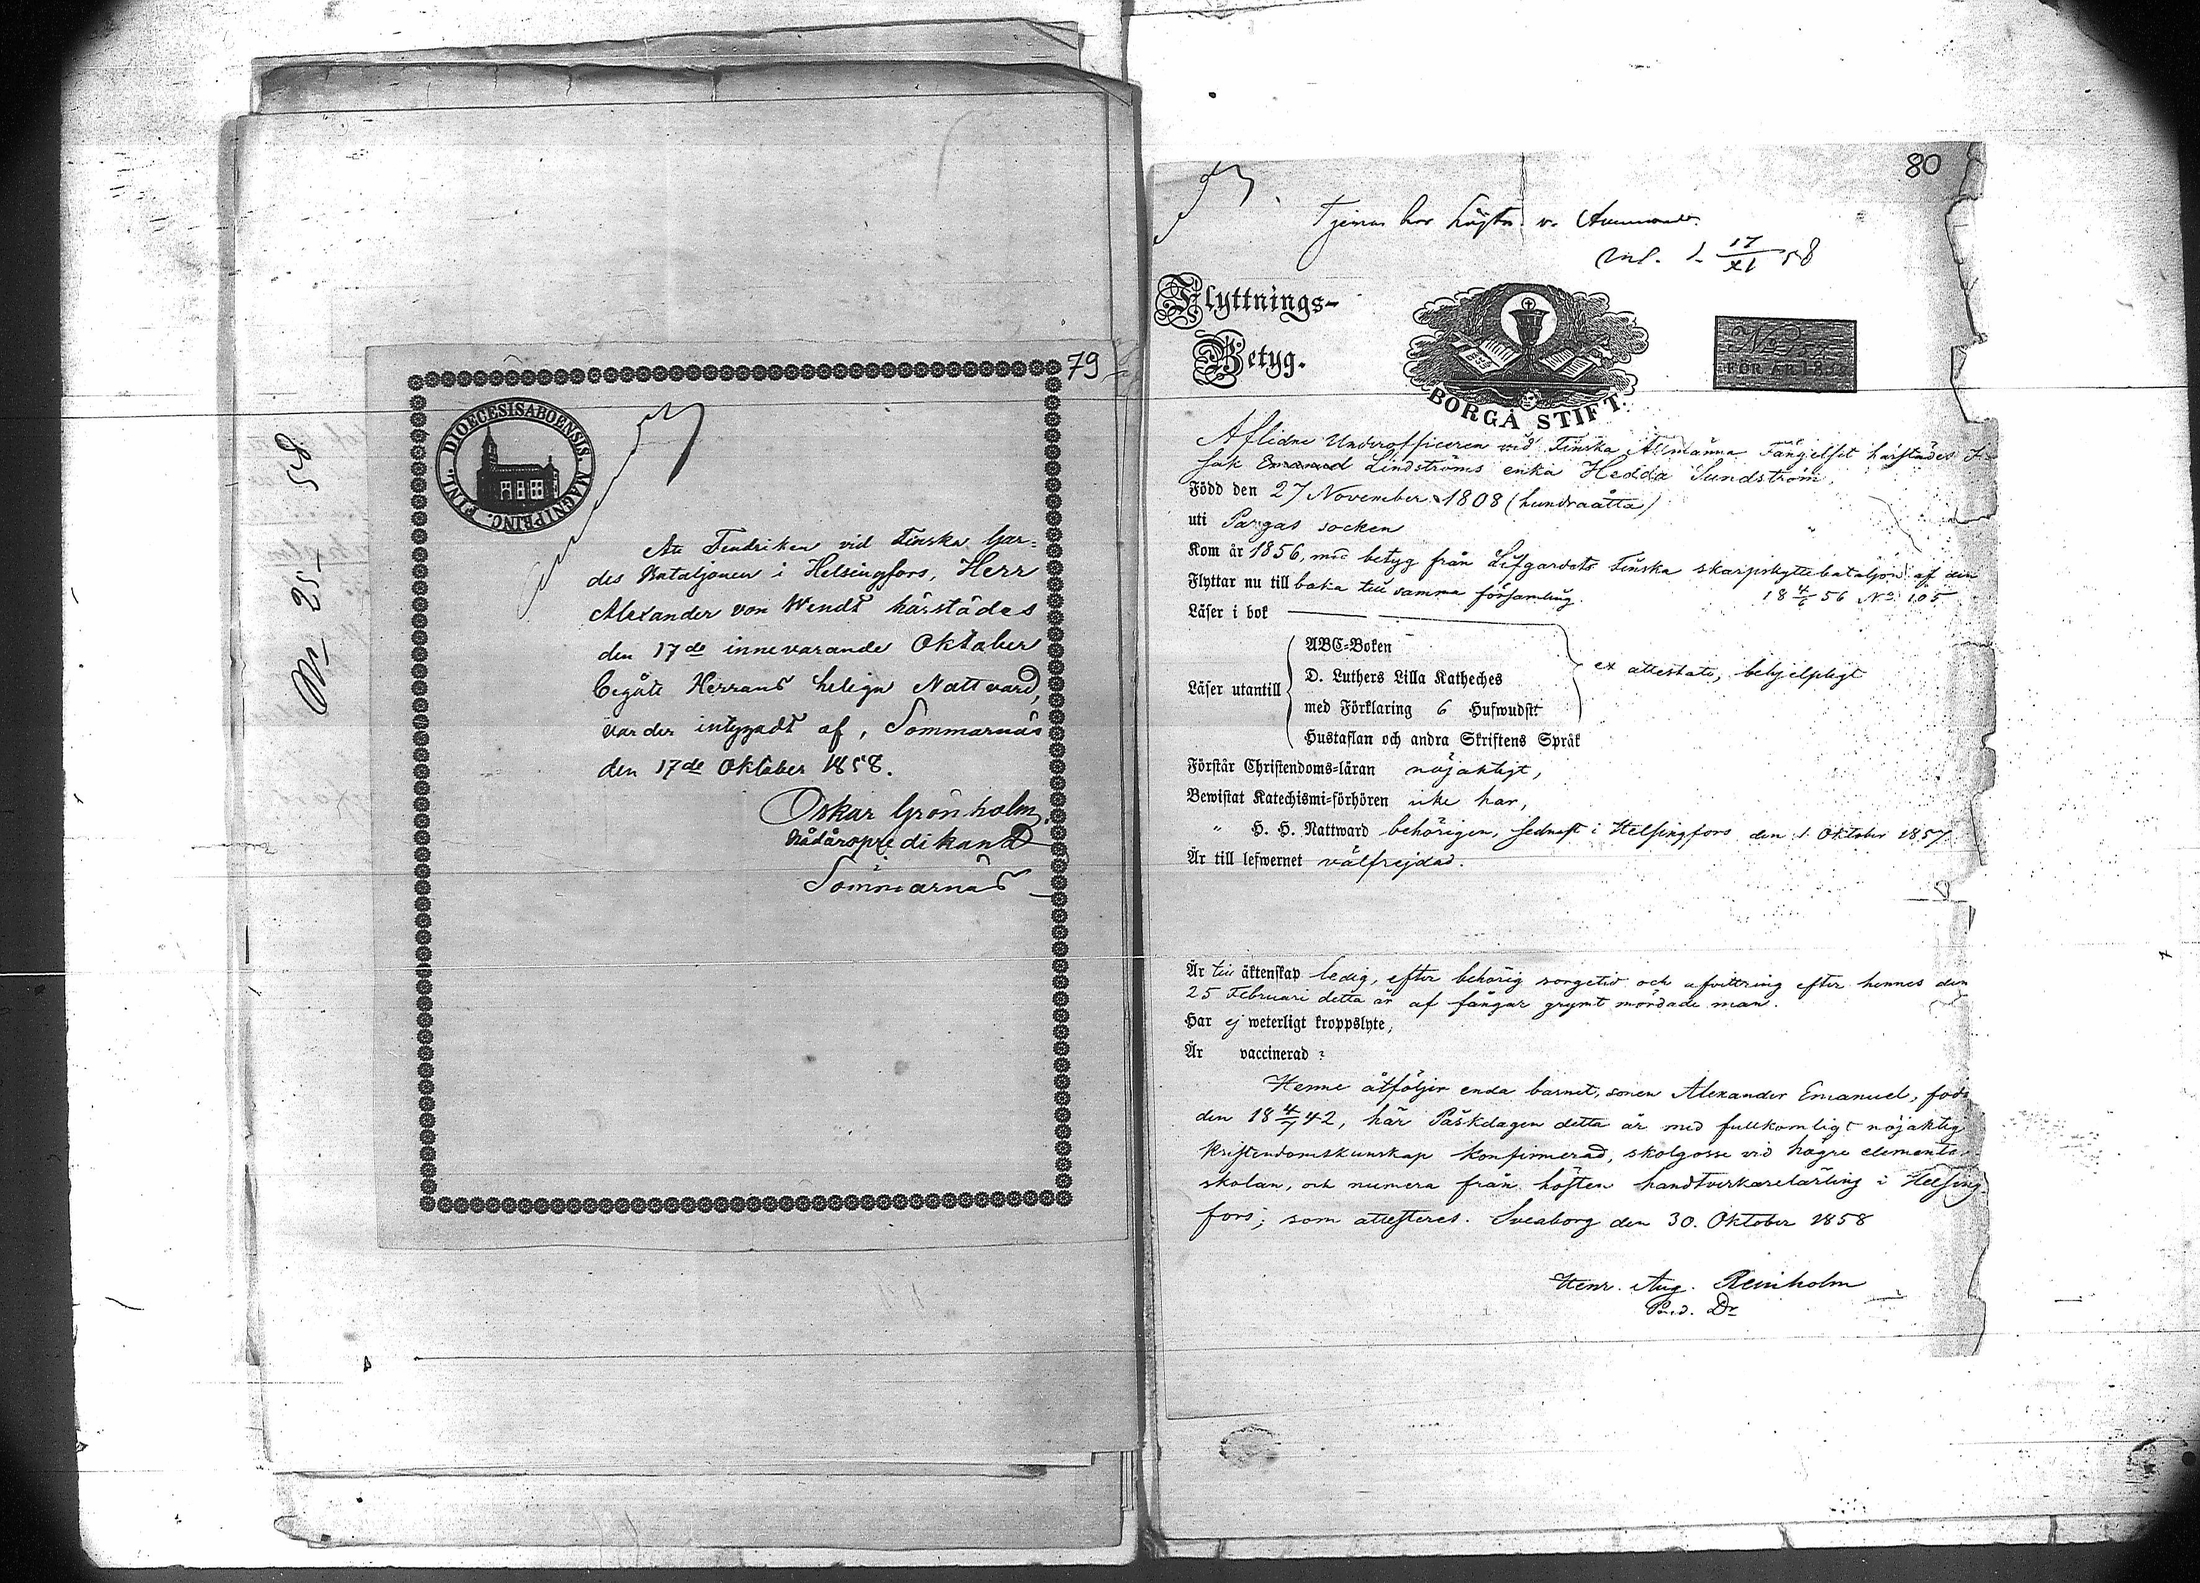 79
DIOECESIS ABOENSIS. MAGNI PRINC. FINL.
№ 25 58
Att Fendriken vid Finska Gar=
des Bataljonen i Helsingfors, Herr
Alexander von Wendt härstädes
den 17de innevarande Oktober
begått Herrans heliga Nattvard,
varder intygadt af, Sommarnäs
den 17de Oktober 1858.
Oskar Grönholm,
Nådårspredikand
Sommarnäs
80
Tjenar hos v.
Inl. d. 17/XI 58
Flyttnings-
Betyg.
BORGÅ STIFT.
No
FÖR ÅR 18
Aflidne Underofficeren vid Finska Allmänna Fängelset härstädes
Lindströms enka Hedda Sundström,
Född den 27 November 1808 (hundraåtta)
uti Pargas socken
Kom år 1856, med betyg från Lifgardets Finska skarpskyttebataljon af den
18 4/6 56 No 105
Flyttar nu till baka till samma församling.
Läser i bok
Läser utantill
ABC=Boken
D. Luthers Lilla Katheches
med Förklaring 6 Hufwudst:
Hustaflan och andra Skriftens Språk
ex attestato, behjelpligt
Förstår Christendoms=läran nöjaktigt,
Bewistat Katechismi=förhören icke här,
" H. H. Nattward behörigen, sednast i Helsingfors den 1. Oktober 1857
Är till lefwernet välfrejdad.
Är till äktenskap ledig, efter behörig sorgetid och afvittring efter hennes den
25 Februari detta år af fångar grymt mördade man.
Har ej weterligt kroppslyte,
Är vaccinerad ?
Henne åtföljer enda barnet, sonen Alexander Emanuel, född
den 18 4/7 42, här Påskdagen detta år med fullkomligt nöjaktig
kristendomskunskap konfirmerad, skolgosse vid högre elementar
skolan, och numera från hösten handtverkarelärling i Helsing
fors; som attesteres. Sveaborg den 30. Oktober 1858
Henr. Aug. Reinholm
Past. Dr